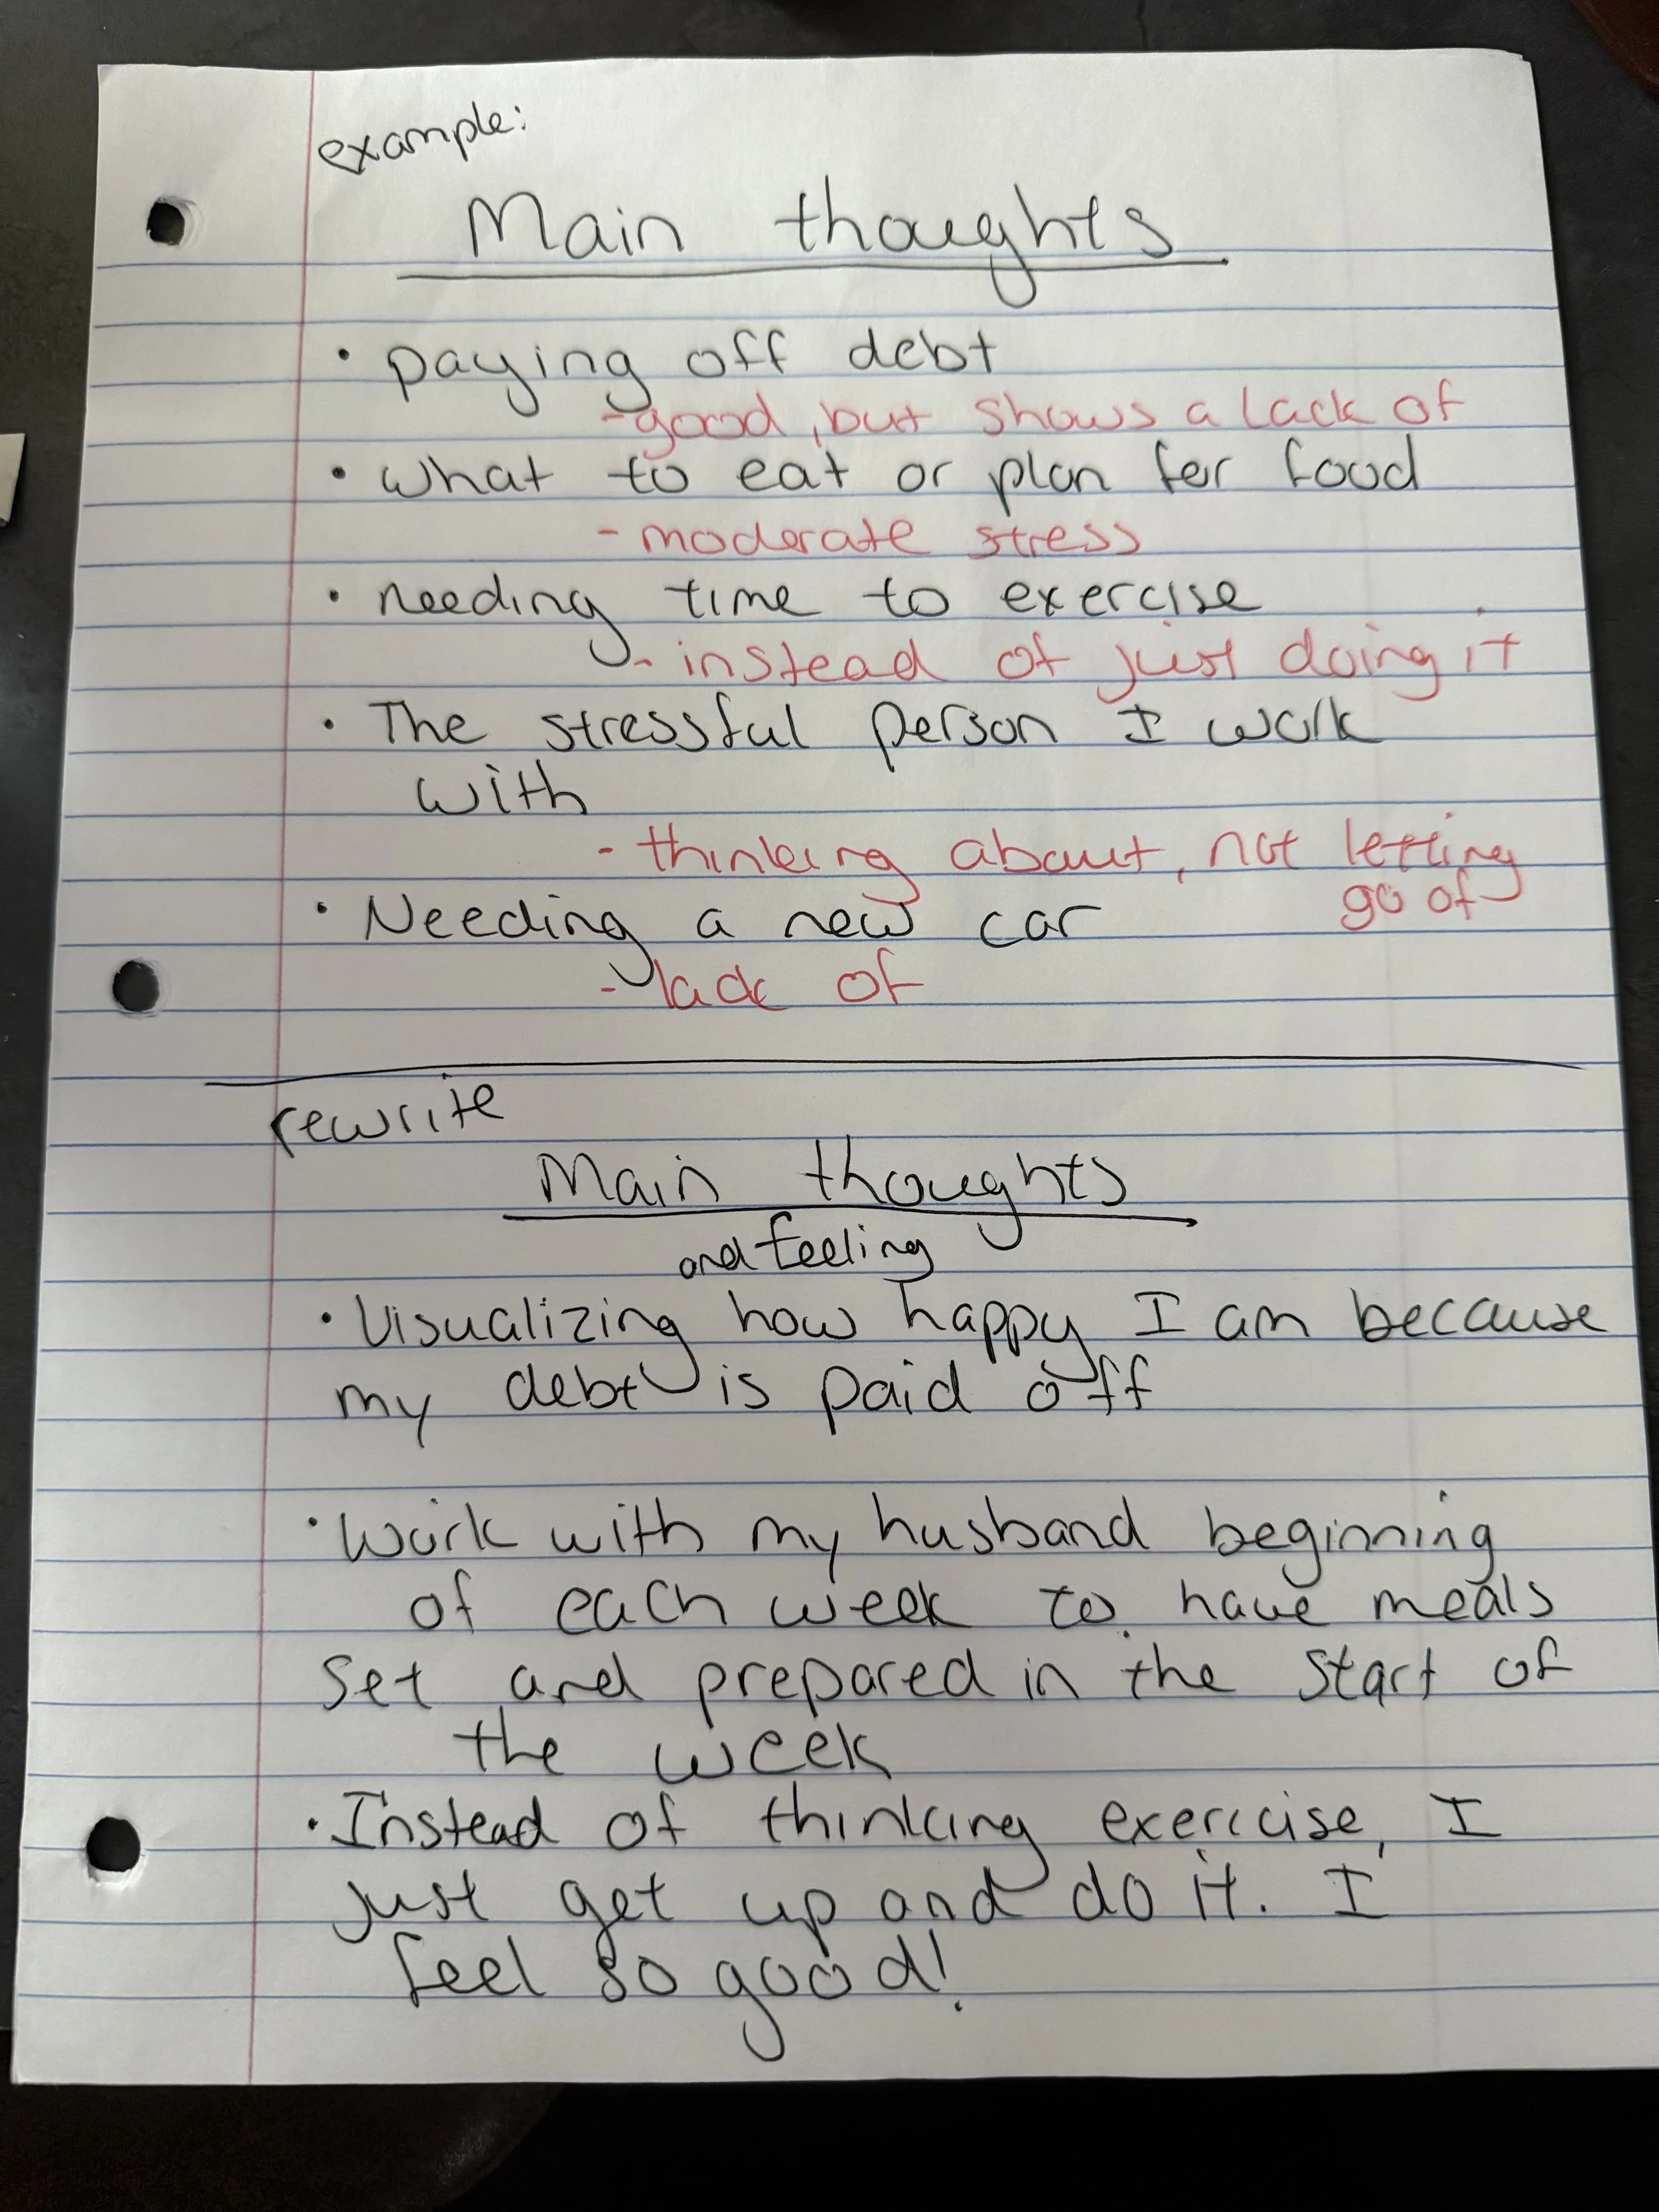 example:
Main thoughts
• paying off debt
- good, but shows a lack of
• what to eat or plan for food
- moderate stress
• needing time to exercise
- instead of just doing it
• The stressful person I work
with
- thinking about, not letting
go of
• Needing a new car
- lack of
rewrite
Main thoughts
and feeling
• Visualizing how happy I am because
my debt is paid off
• Work with my husband beginning
of each week to have meals
set and prepared in the start of
the week
• Instead of thinking exercise, I
just get up and do it. I
feel so good!